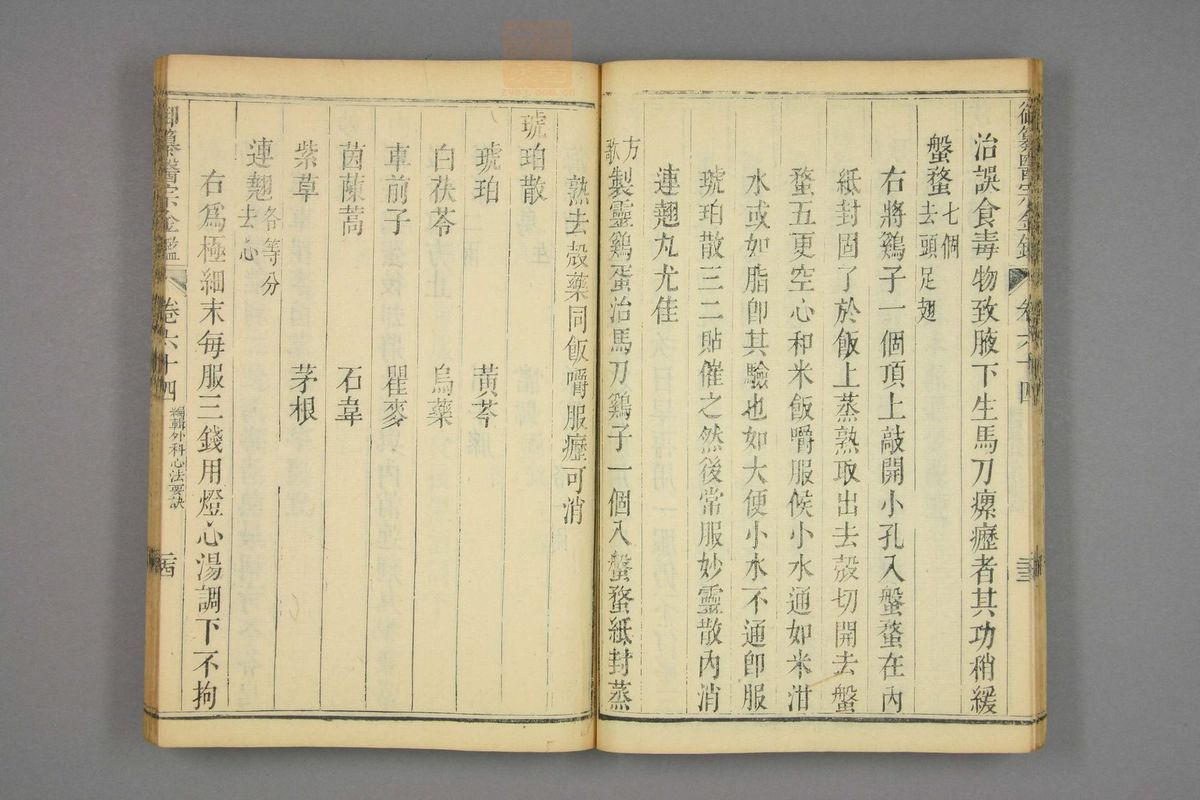 御纂醫宗金鑑
卷六十四
三三
治誤食毒物致腋下生馬刀瘰癧者其功稍緩
盤蝥七個去頭足翅
右將鷄子一個頂上敲開小孔入盤蝥在內
紙封固了於飯上蒸熟取出去殼切開去盤
蝥五更空心和米飯嚼服候小水通如米泔
水或如脂卽其驗也如大便小水不通卽服
琥珀散三二貼催之然後常服妙靈散內消
連翹丸尤佳
方歌製靈鷄蛋治馬刀鷄子一個入盤蝥紙封蒸
熟去殼藥同飯嚼服癧可消
琥珀散
琥珀 黃芩
白茯苓 烏藥
車前子 瞿麥
茵蔯蒿 石韋
紫草 茅根
連翹去心各等分
右爲極細末每服三錢用燈心湯調下不拘
御纂醫宗金鑑
卷六十四
編輯外科心法要訣
二四